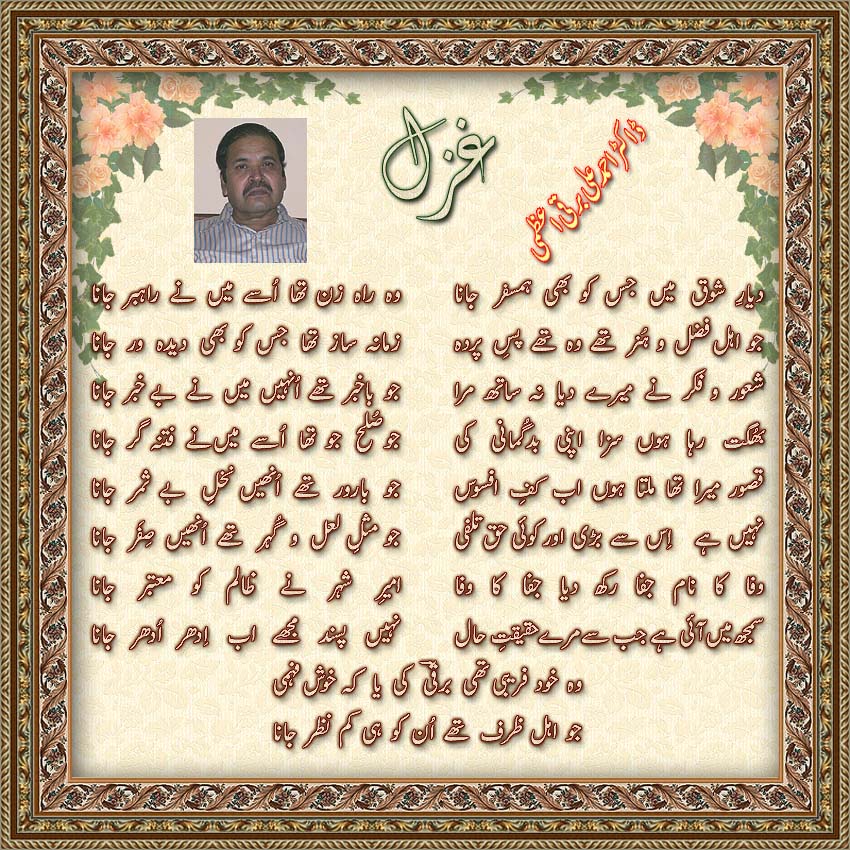 غزل
ڈاکٹر احمد علی برقی اعظمی
دیارِ شوق میں جس کو بھی ہمسفر جانا
وہ راہ زن تھا اُسے میں نے راہبر جانا
جو اہل فضل و ہُنر تھے وہ تھے پسِ پردہ
زمانہ ساز تھا جس کو بھی دیدہ ور جانا
شعور و فکر نے میرے دیا نہ ساتھ مرا
جو باخبر تھے اُنہیں میں نے بے خبر جانا
بھُگت رہا ہوں سزا اپنی بدگُمانی کی
جو صُلح جو تھا اُسے میں نے فتنہ گر جانا
قصور میرا تھا ملتا ہوں اب کفِ افسوس
جو بارور تھے اُنھیں نخلِ بے ثمر جانا
نہیں ہے اِس سے بڑی اور کوئی حق تلفی
جو مثلِ لعل و گُہر تھے اُنھیں صِفَر جانا
وفا کا نام جفا رکھ دیا جفا کا وفا
امیرِ شہر نے ظالم کو معتبر جانا
سمجھ میں آئی ہے جب سے مرے حقیقتِ حال
نہیں پسند مجھے اب اِدھر اُدھر جانا
وہ خود فریبی تھی برقیؔ کی یا کہ خوش فہمی
جو اہل ظرف تھے اُن کو ہی کم نظر جانا